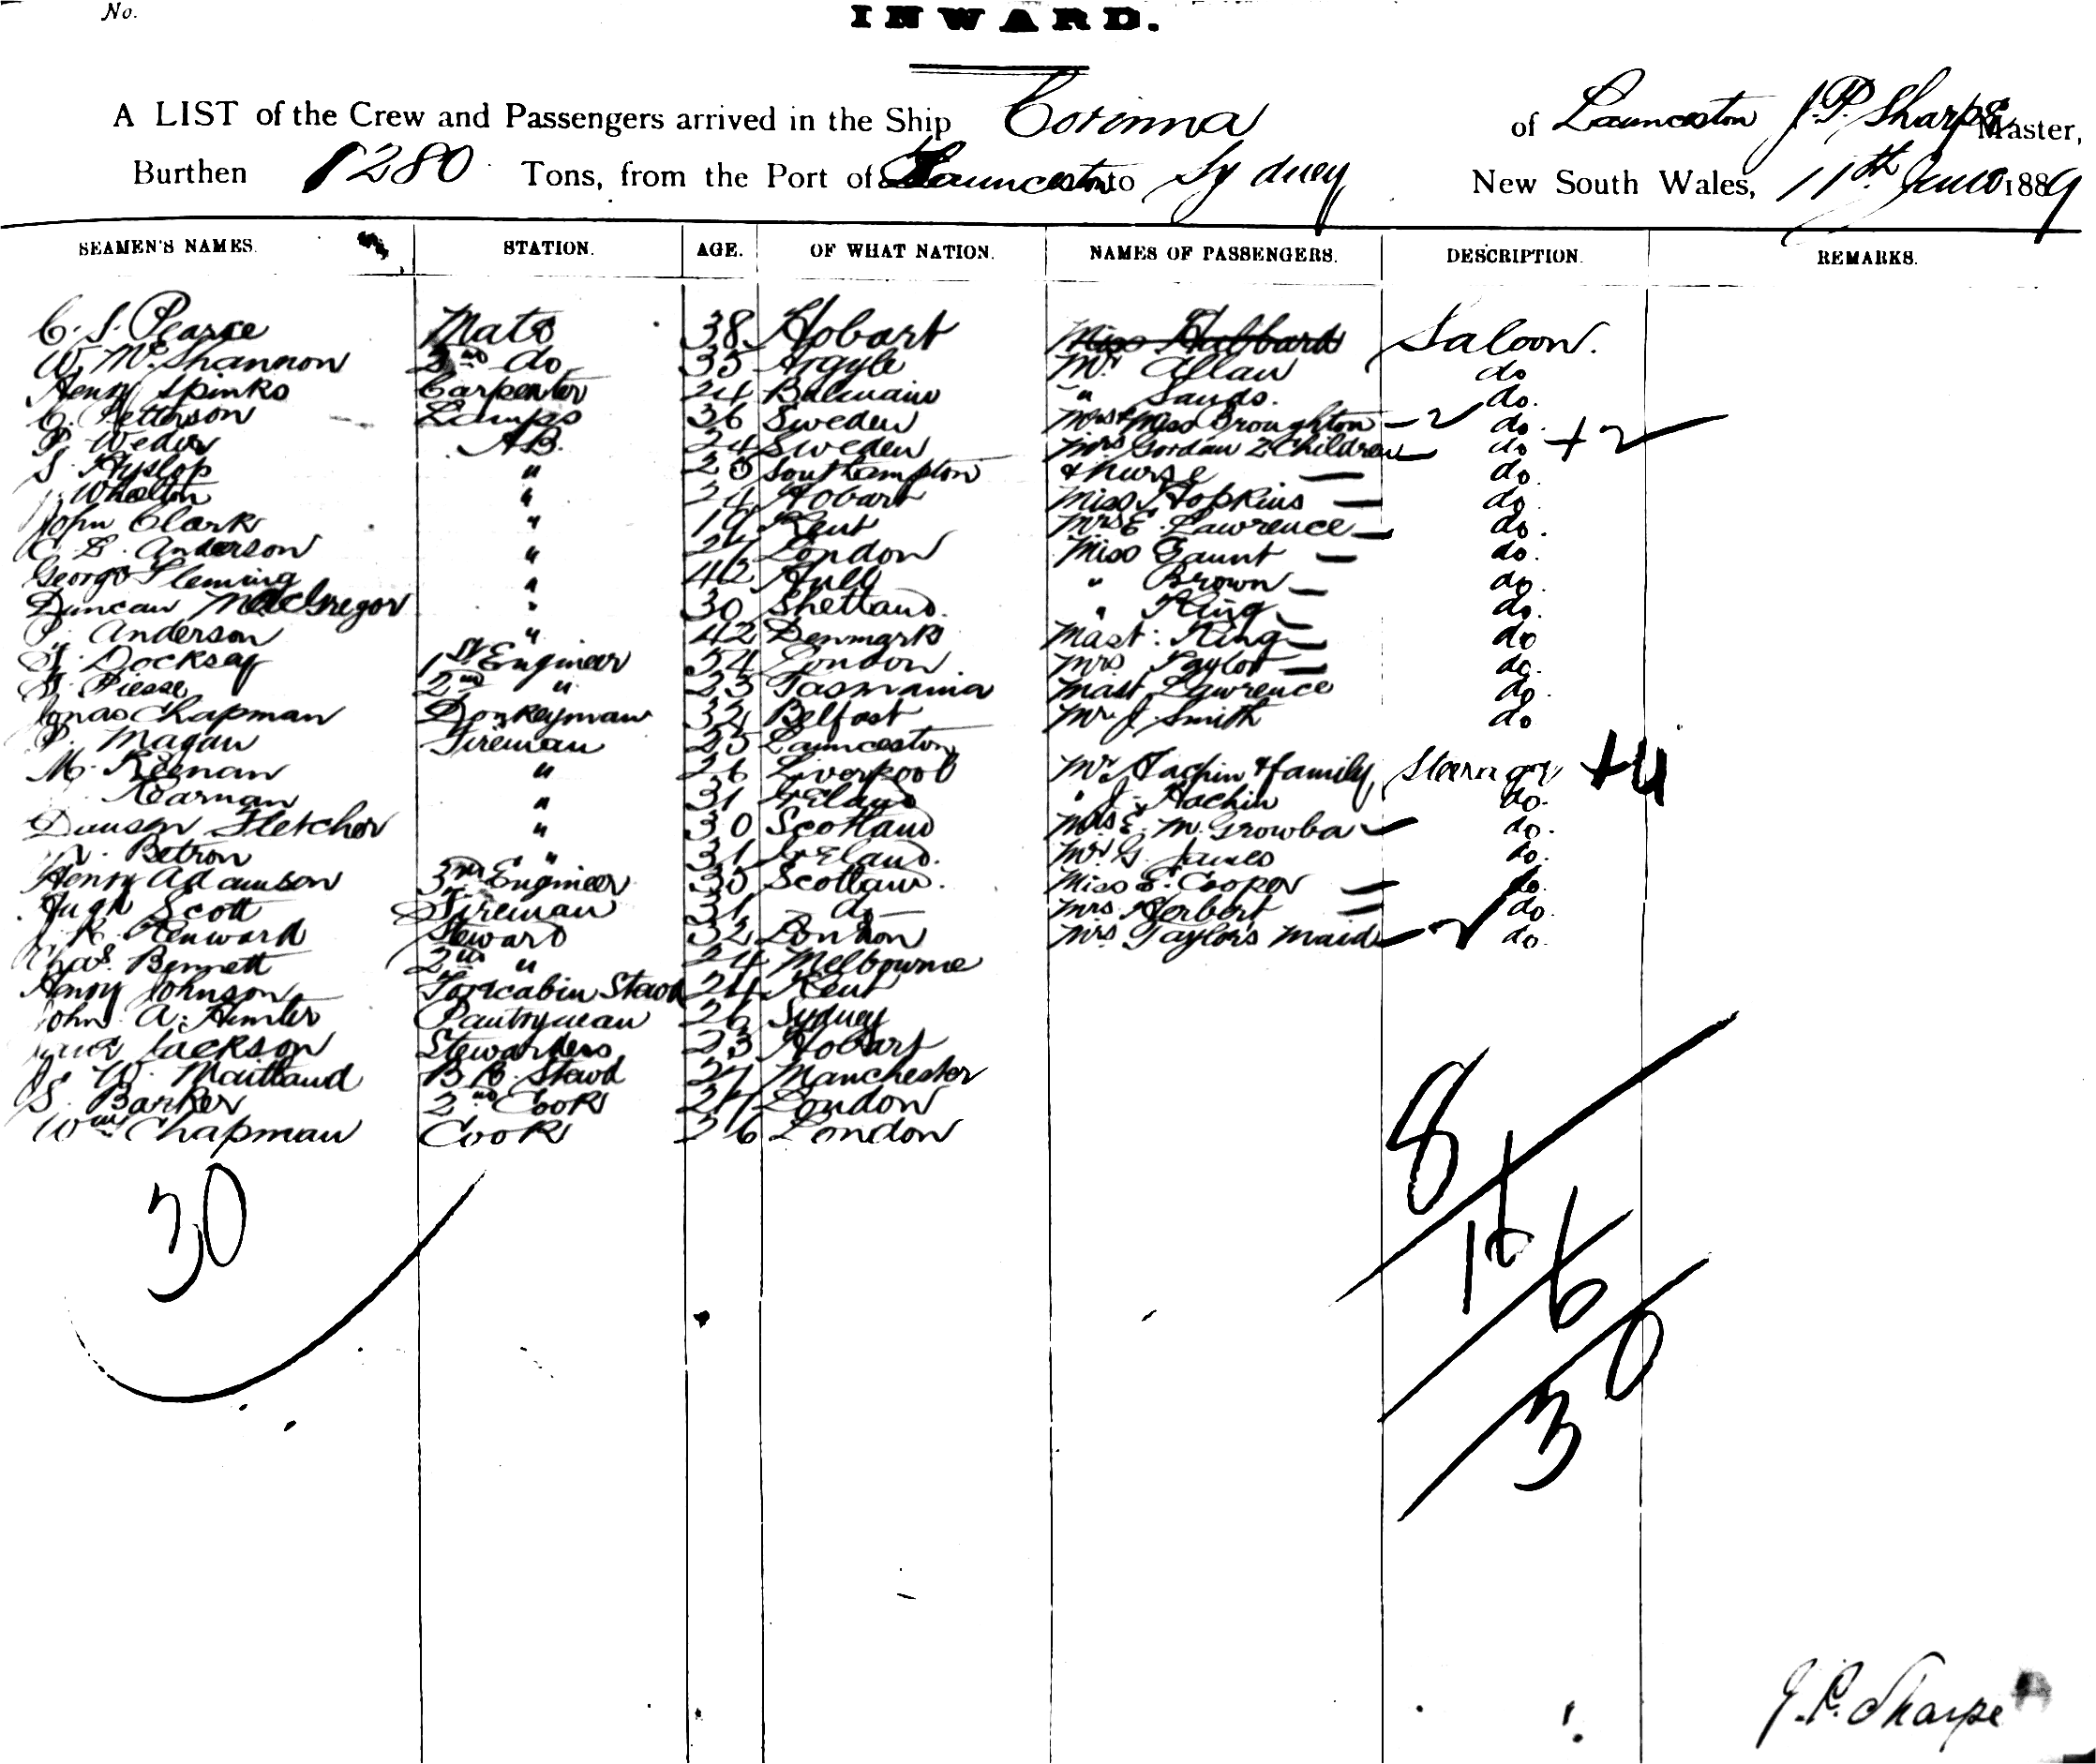 No.
INWARD.
A LIST of the Crew and Passengers arrived in the Ship Corinna of Launceston J. P. Sharpe Master,
Burthen 1280 Tons, from the Port of Launceston to Sydney New South Wales, 11th June 1889
SEAMEN'S NAMES. STATION. AGE. OF WHAT NATION. NAMES OF PASSENGERS. DESCRIPTION. REMARKS.
C. S. Pearce Mate 38 Hobart Miss Hubbard Saloon.
W. McShannon 2nd do 35 Argyle Mr Allan do
Henry Spinks Carpenter 24 Balmain " Sands. do.
C. Petterson Lamps 36 Sweden Mrs & Miss Broughton - 2 do.
P. Weder A.B. 24 Sweden Mrs Gordan 2 Children do + 2
S. Hyslop " 28 Southampton & nurse - do.
Whelton " 24 Hobart Miss Hopkins - do
John Clark " 19 Kent Mrs E. Lawrence - do.
C. E. Anderson " 27 London Miss Gaunt - do.
George Fleming " 42 Hull " Brown - do
Duncan MacGregor " 30 Shetland. " King - do.
Anderson " 42 Denmark Mast: King - do
Docksey 1st Engineer 54 London. Mrs Taylor - do.
Piesse 2nd " 23 Tasmania Mast Lawrence do.
Jonas Chapman Donkeyman 32 Belfast Mr J. Smith do
P. Magan Fireman 25 Launceston
M. Keenan " 26 Liverpool Mr. Hachin & family, Steerage + 4
Kearnan " 31 Ireland " J. Hachin do.
Duncan Fletcher " 30 Scotland Mrs E. M. Growba - do.
Betron " 31 Ireland. Mr G. James do.
Henry Adamson 3rd Engineer 35 Scotland. Miss E. Cooper - do.
Hugh Scott Fireman 31 do Mrs Herbert - do.
J. R. Kenward Steward 32 London Mrs Taylor's Maid - 2 do.
Chas. Bennett 2nd " 24 Melbourne
Henry Johnson Forecabin Stewd 24 Kent
John A. Hunter Pantryman 26 Sydney
Jackson Stewardess 23 Hobart
W. Maitland B. R. Stewd 27 Manchester
S. Barker 2nd Cook 27 London
Wm Chapman Cook 26 London
30
8
16
6
30
J. P. Sharpe